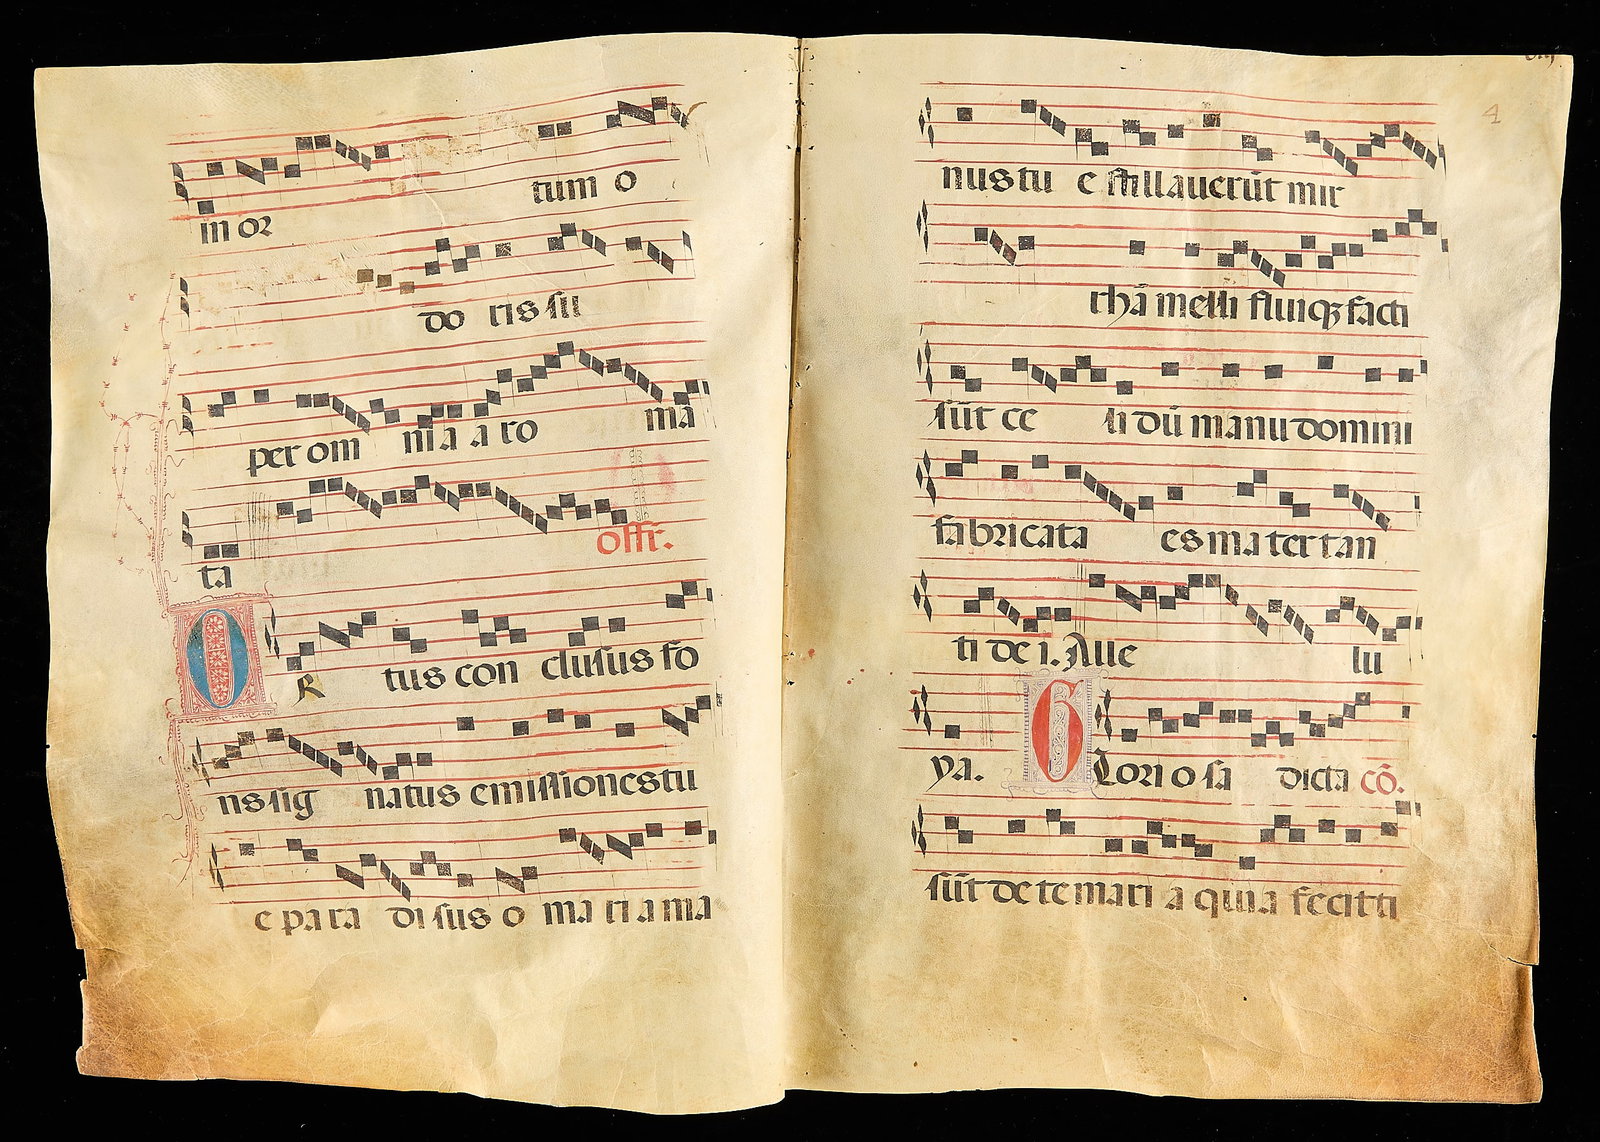 in or tum o
do ris sui
per om nia a ro ma
ta offr.
OR tus con clusus fo
ns sig natus emissiones tu
e para disus o maria ma
4
nus tu e stillaverūt mir
rhā melli fluiqꝫ facti
sūt ce li dū manu domini
fabricata es mater tan
ti dei. Alle lu
ya. Glori o sa dicta cō.
sūt de te mari a quia fecit ti